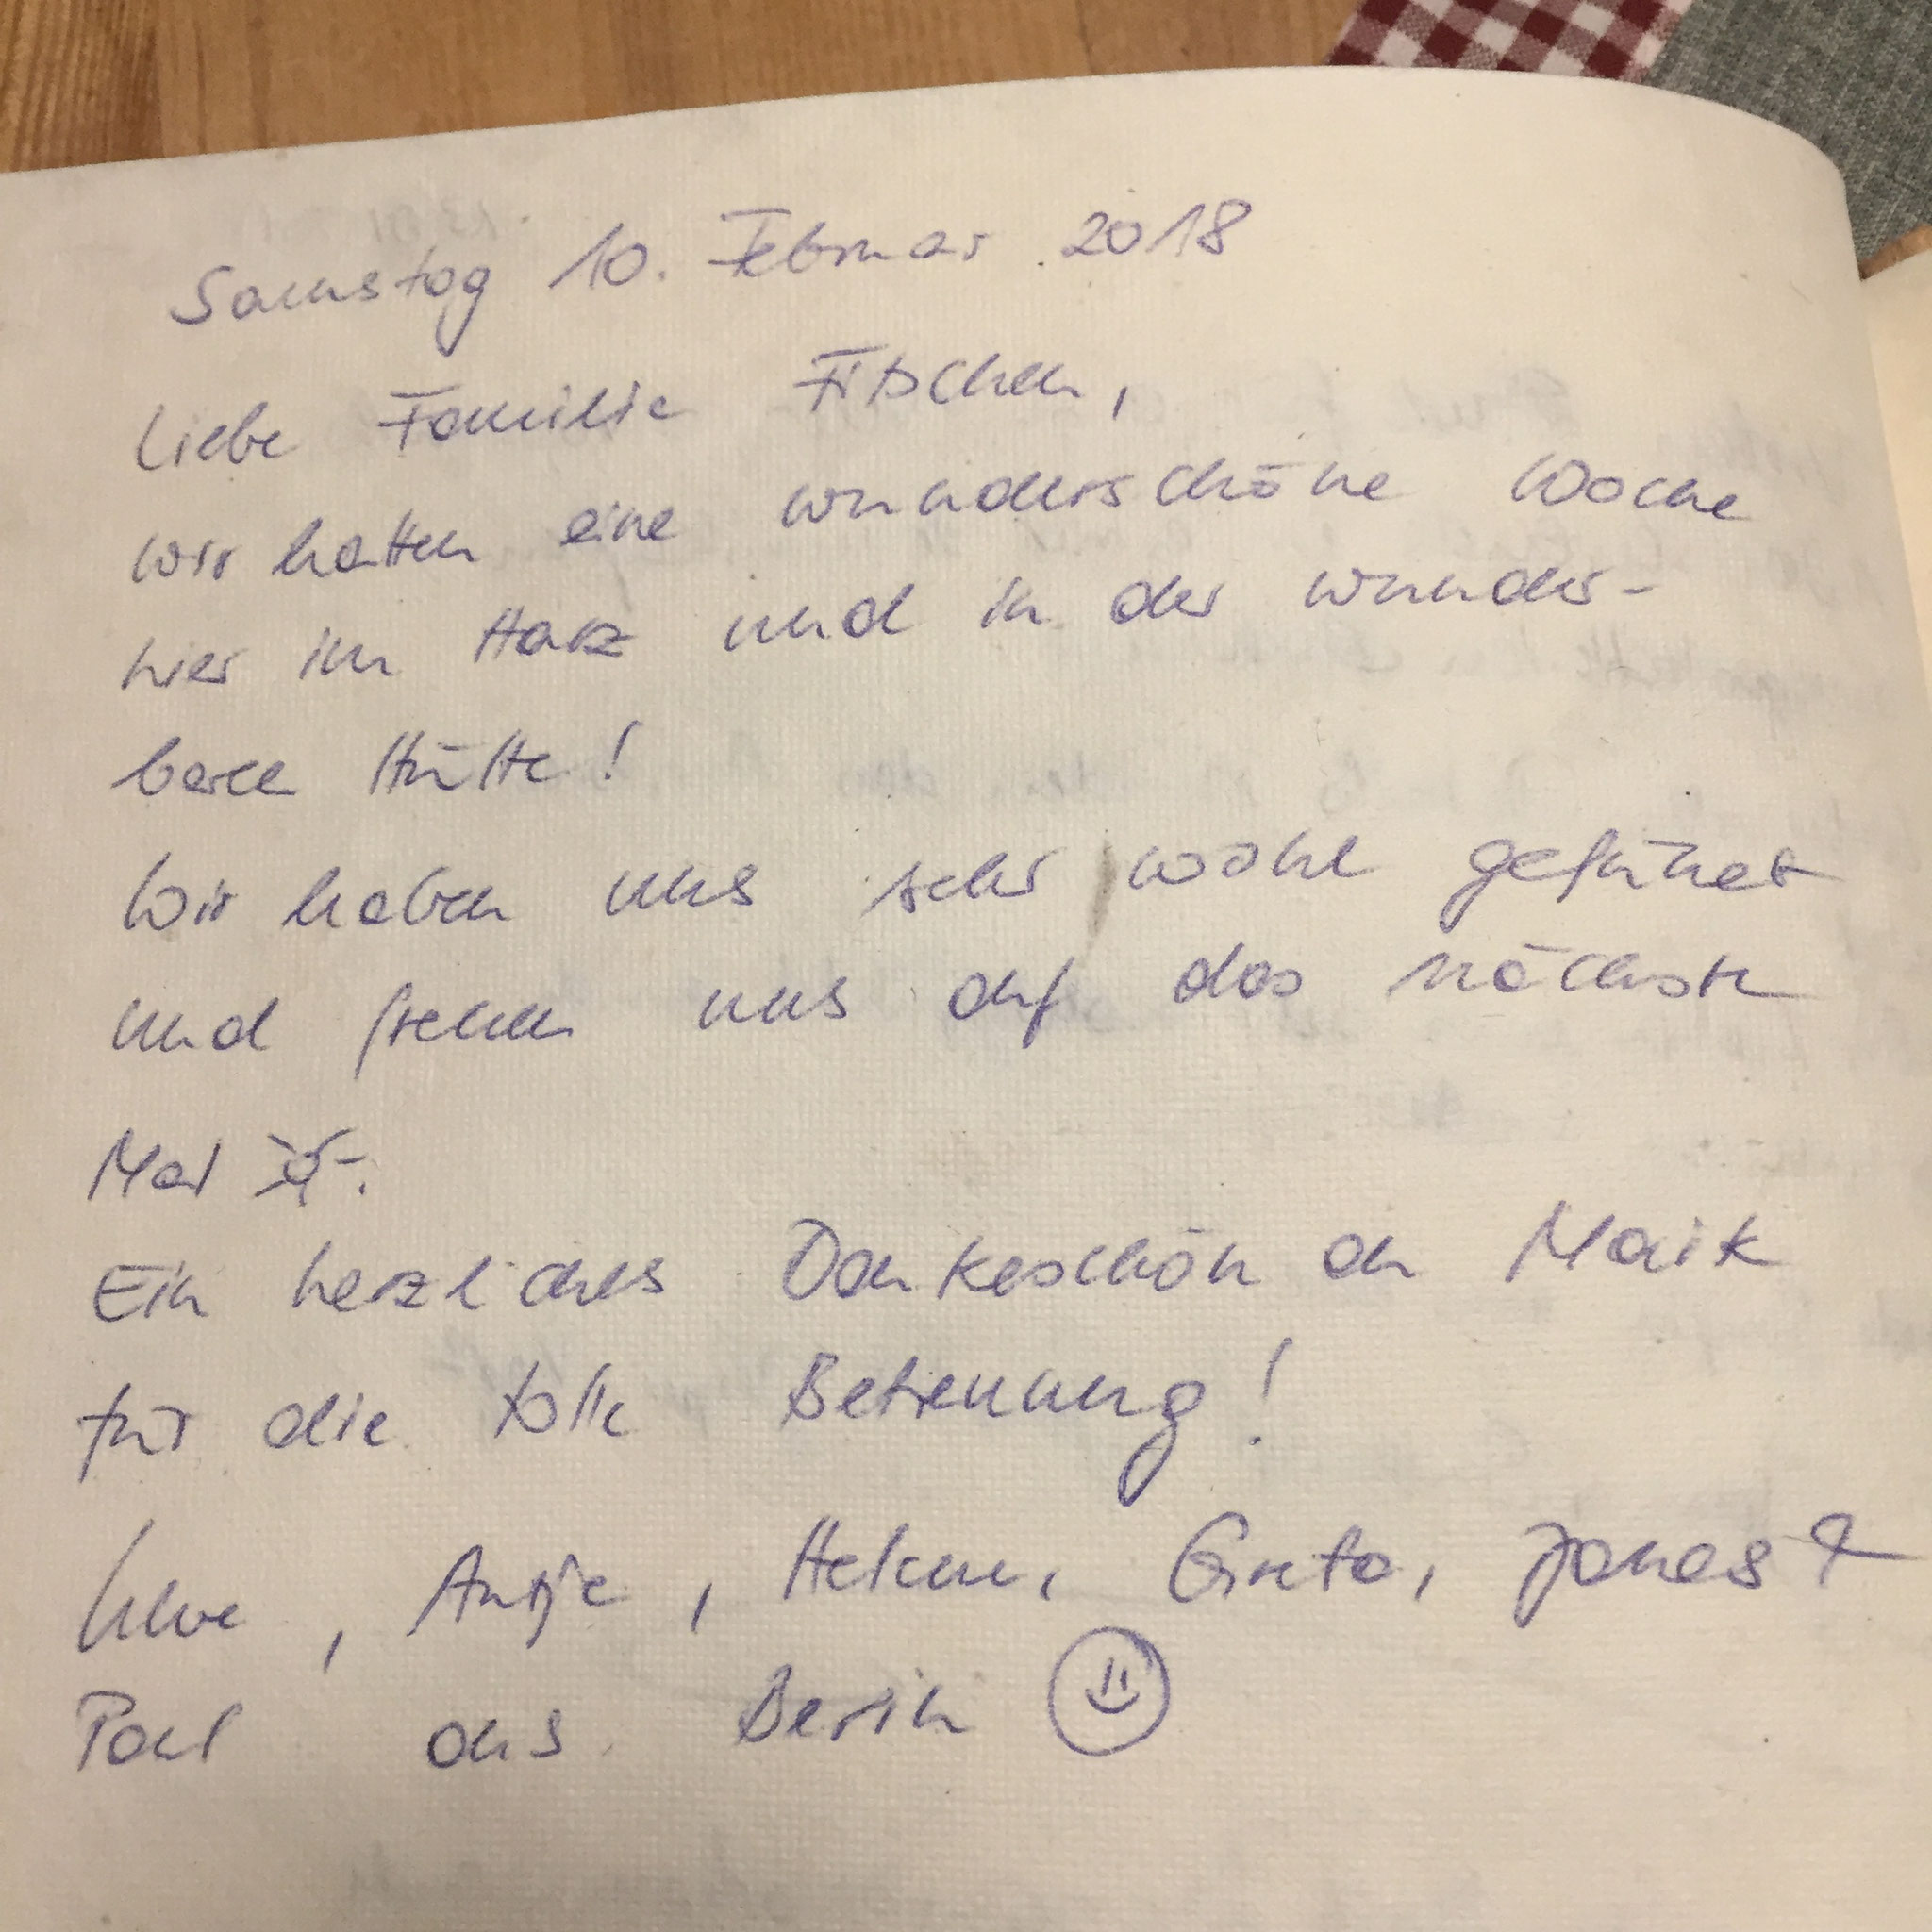 Samstag 10. Februar 2018
Liebe Familie
wir hatten eine wunderschöne Woche
hier im Harz und in der wunder-
baren Hütte!
Wir haben uns sehr wohl gefühlt
und freuen uns auf das nächste
Mal
Ein herzliches Dankeschön an Maik
für die tolle Betreuung!
Uwe, Antje, Helene, Greta, Jonas &
Paul aus Berlin